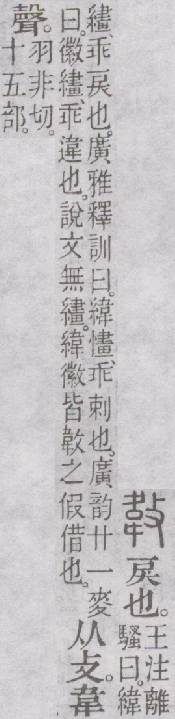 𢾁戾也。
王注離
騷曰。緯
繣、乖戾也。廣雅釋訓曰。緯㦎、乖剌也。廣韵廿一麥
曰。徽繣、乖違也。說文無繣。緯徽皆𢾁之假借也。
从攴。韋
聲。
羽非切。
十五部。